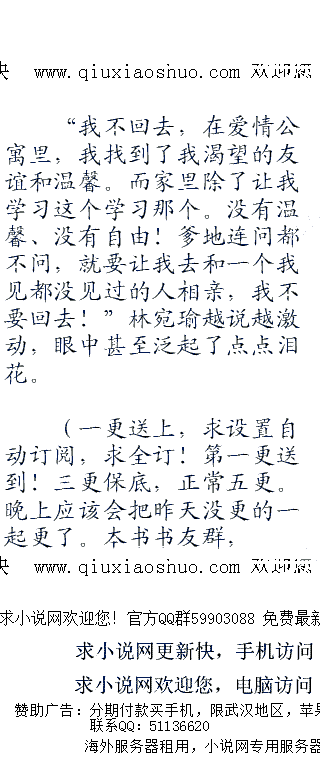 快 www.qiuxiaoshuo.com 欢迎您
“我不回去，在爱情公
寓里，我找到了我渴望的友
谊和温馨。而家里除了让我
学习这个学习那个。没有温
馨、没有自由！爹地连问都
不问，就要让我去和一个我
见都没见过的人相亲，我不
要回去！”林宛瑜越说越激
动，眼中甚至泛起了点点泪
花。
（一更送上，求设置自
动订阅，求全订！第一更送
到！三更保底，正常五更。
晚上应该会把昨天没更的一
起更了。本书书友群，
快 www.qiuxiaoshuo.com 欢迎您
求小说网欢迎您！官方QQ群59903088 免费最新
求小说网更新快，手机访问
求小说网欢迎您，电脑访问
赞助广告：分期付款买手机，限武汉地区，苹果
联系QQ：51136620
海外服务器租用，小说网专用服务器